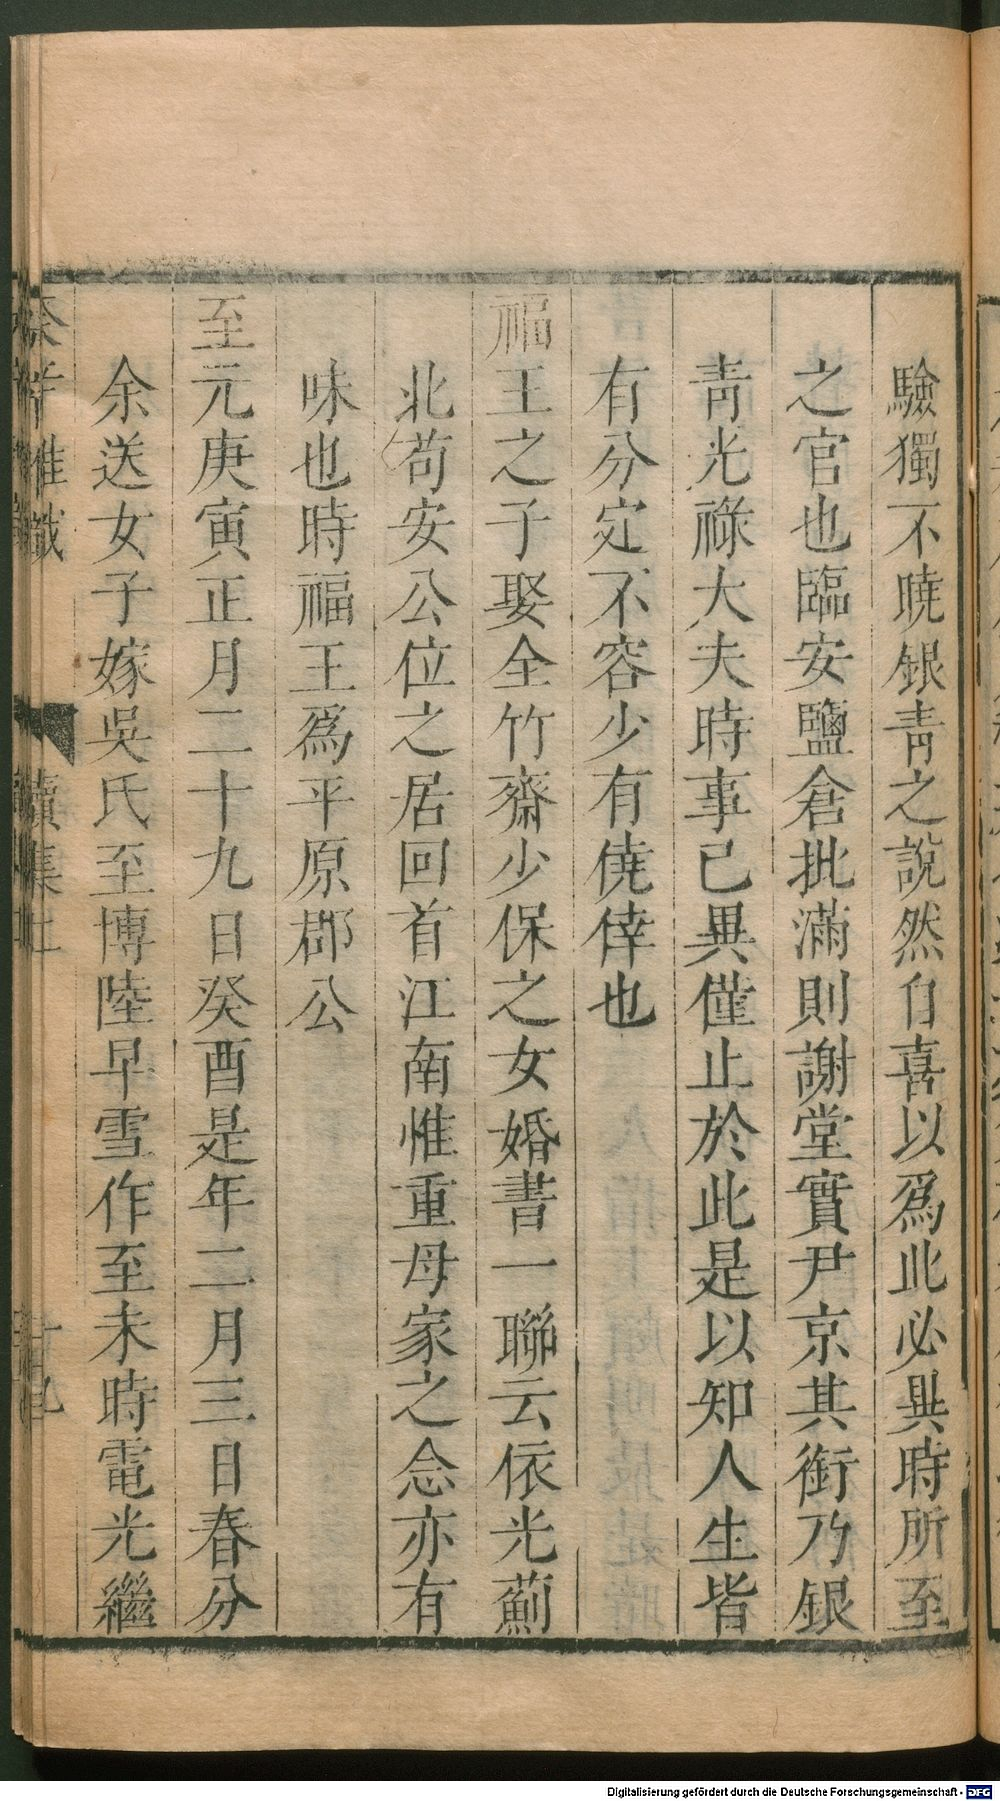 驗獨不曉銀青之說然自喜以爲此必異時所至
之官也臨安鹽倉批滿則謝堂實尹京其銜乃銀
青光祿大夫時事已異僅止於此是以知人生皆
有分定不容少有僥倖也
福王之子娶全竹齋少保之女婚書一聯云依光薊
北苟安公位之居回首江南惟重母家之念亦有
味也時福王爲平原郡公
至元庚寅正月二十九日癸酉是年二月三日春分
余送女子嫁吳氏至博陸早雪作至未時電光繼
癸辛雜識 續集上
Digitalisierung gefördert durch die Deutsche Forschungsgemeinschaft - DFG